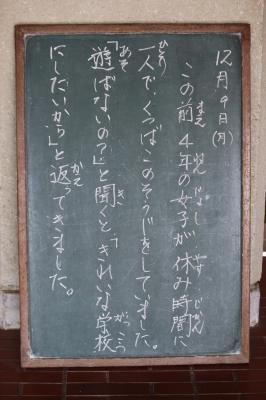 12月9日(月)
この前、4年の女子が、休み時間に
一人で、くつばこのそうじをしていました。
「遊ばないの？」と聞くと、「きれいな学校
にしたいから」と返ってきました。